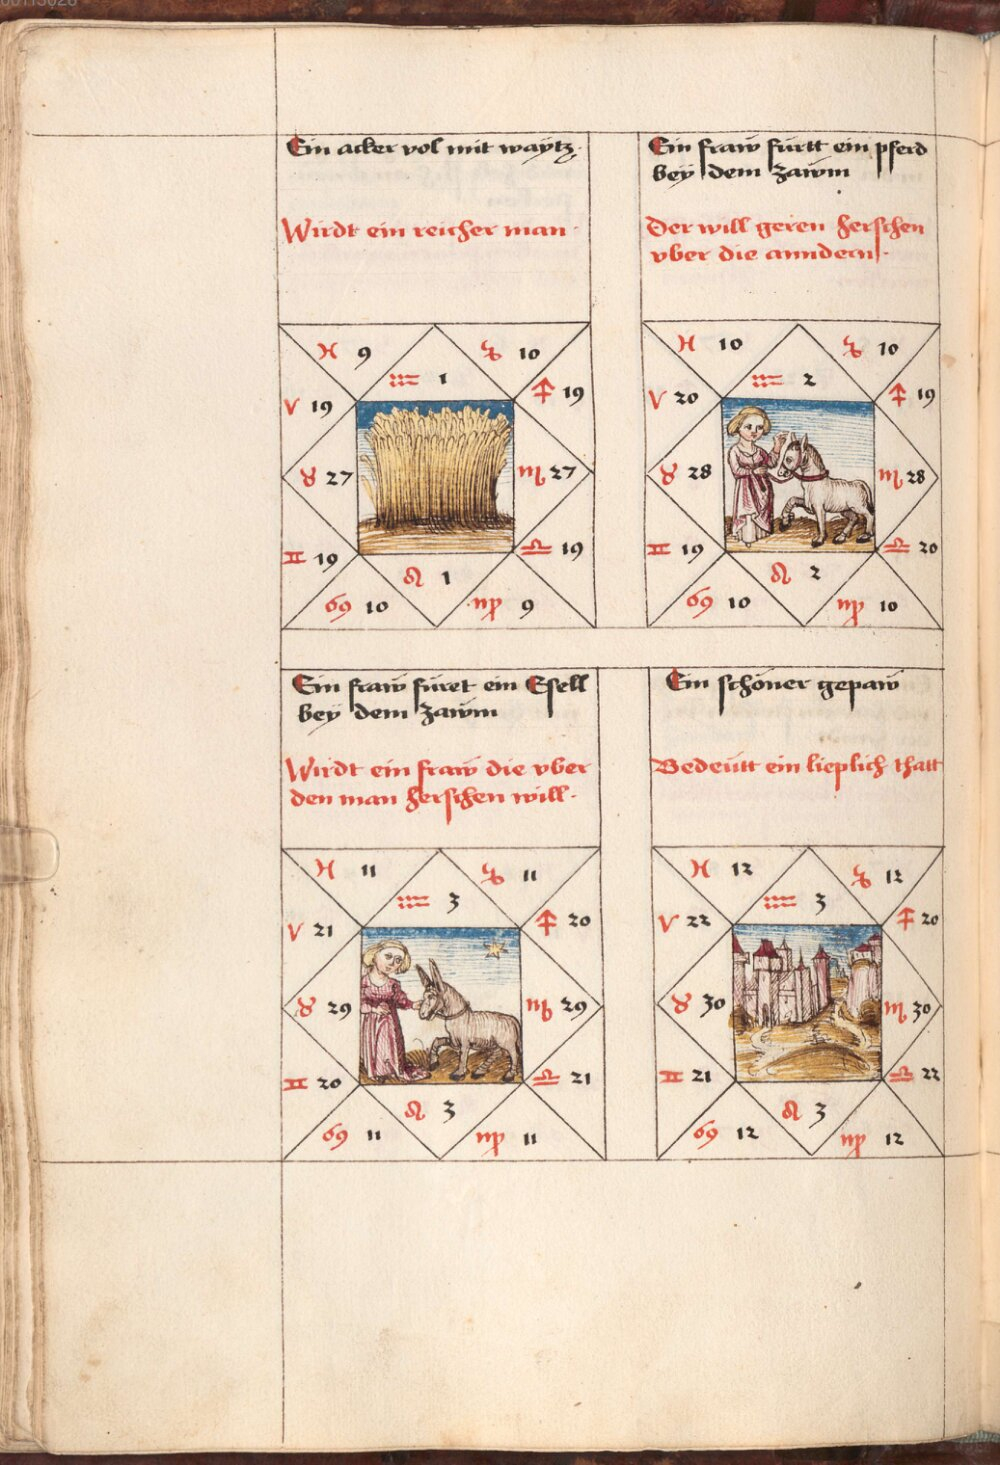 Ein acker vol mit waÿtz.
Wirdt ein reicher man.
♓ 9
♑ 10
♒ 1
♈ 19
♐ 19
♉ 27
♏ 27
♊ 19
♎ 19
♌ 1
♋ 10
♍ 9
Ein fraw fürtt ein pferd
beÿ dem zawm
Der will geren herschen
vber die anndern.
♓ 10
♑ 10
♒ 2
♈ 20
♐ 19
♉ 28
♏ 28
♊ 19
♎ 20
♌ 2
♋ 10
♍ 10
Ein fraw füret ein Esell
beÿ dem zawm
Wirdt ein fraw die vber
den man herschen will.
♓ 11
♑ 11
♒ 3
♈ 21
♐ 20
♉ 29
♏ 29
♊ 20
♎ 21
♌ 3
♋ 11
♍ 11
Ein schöner gepaw
Bedeütt ein lieplich thatt
♓ 12
♑ 12
♒ 3
♈ 22
♐ 20
♉ 30
♏ 30
♊ 21
♎ 22
♌ 3
♋ 12
♍ 12